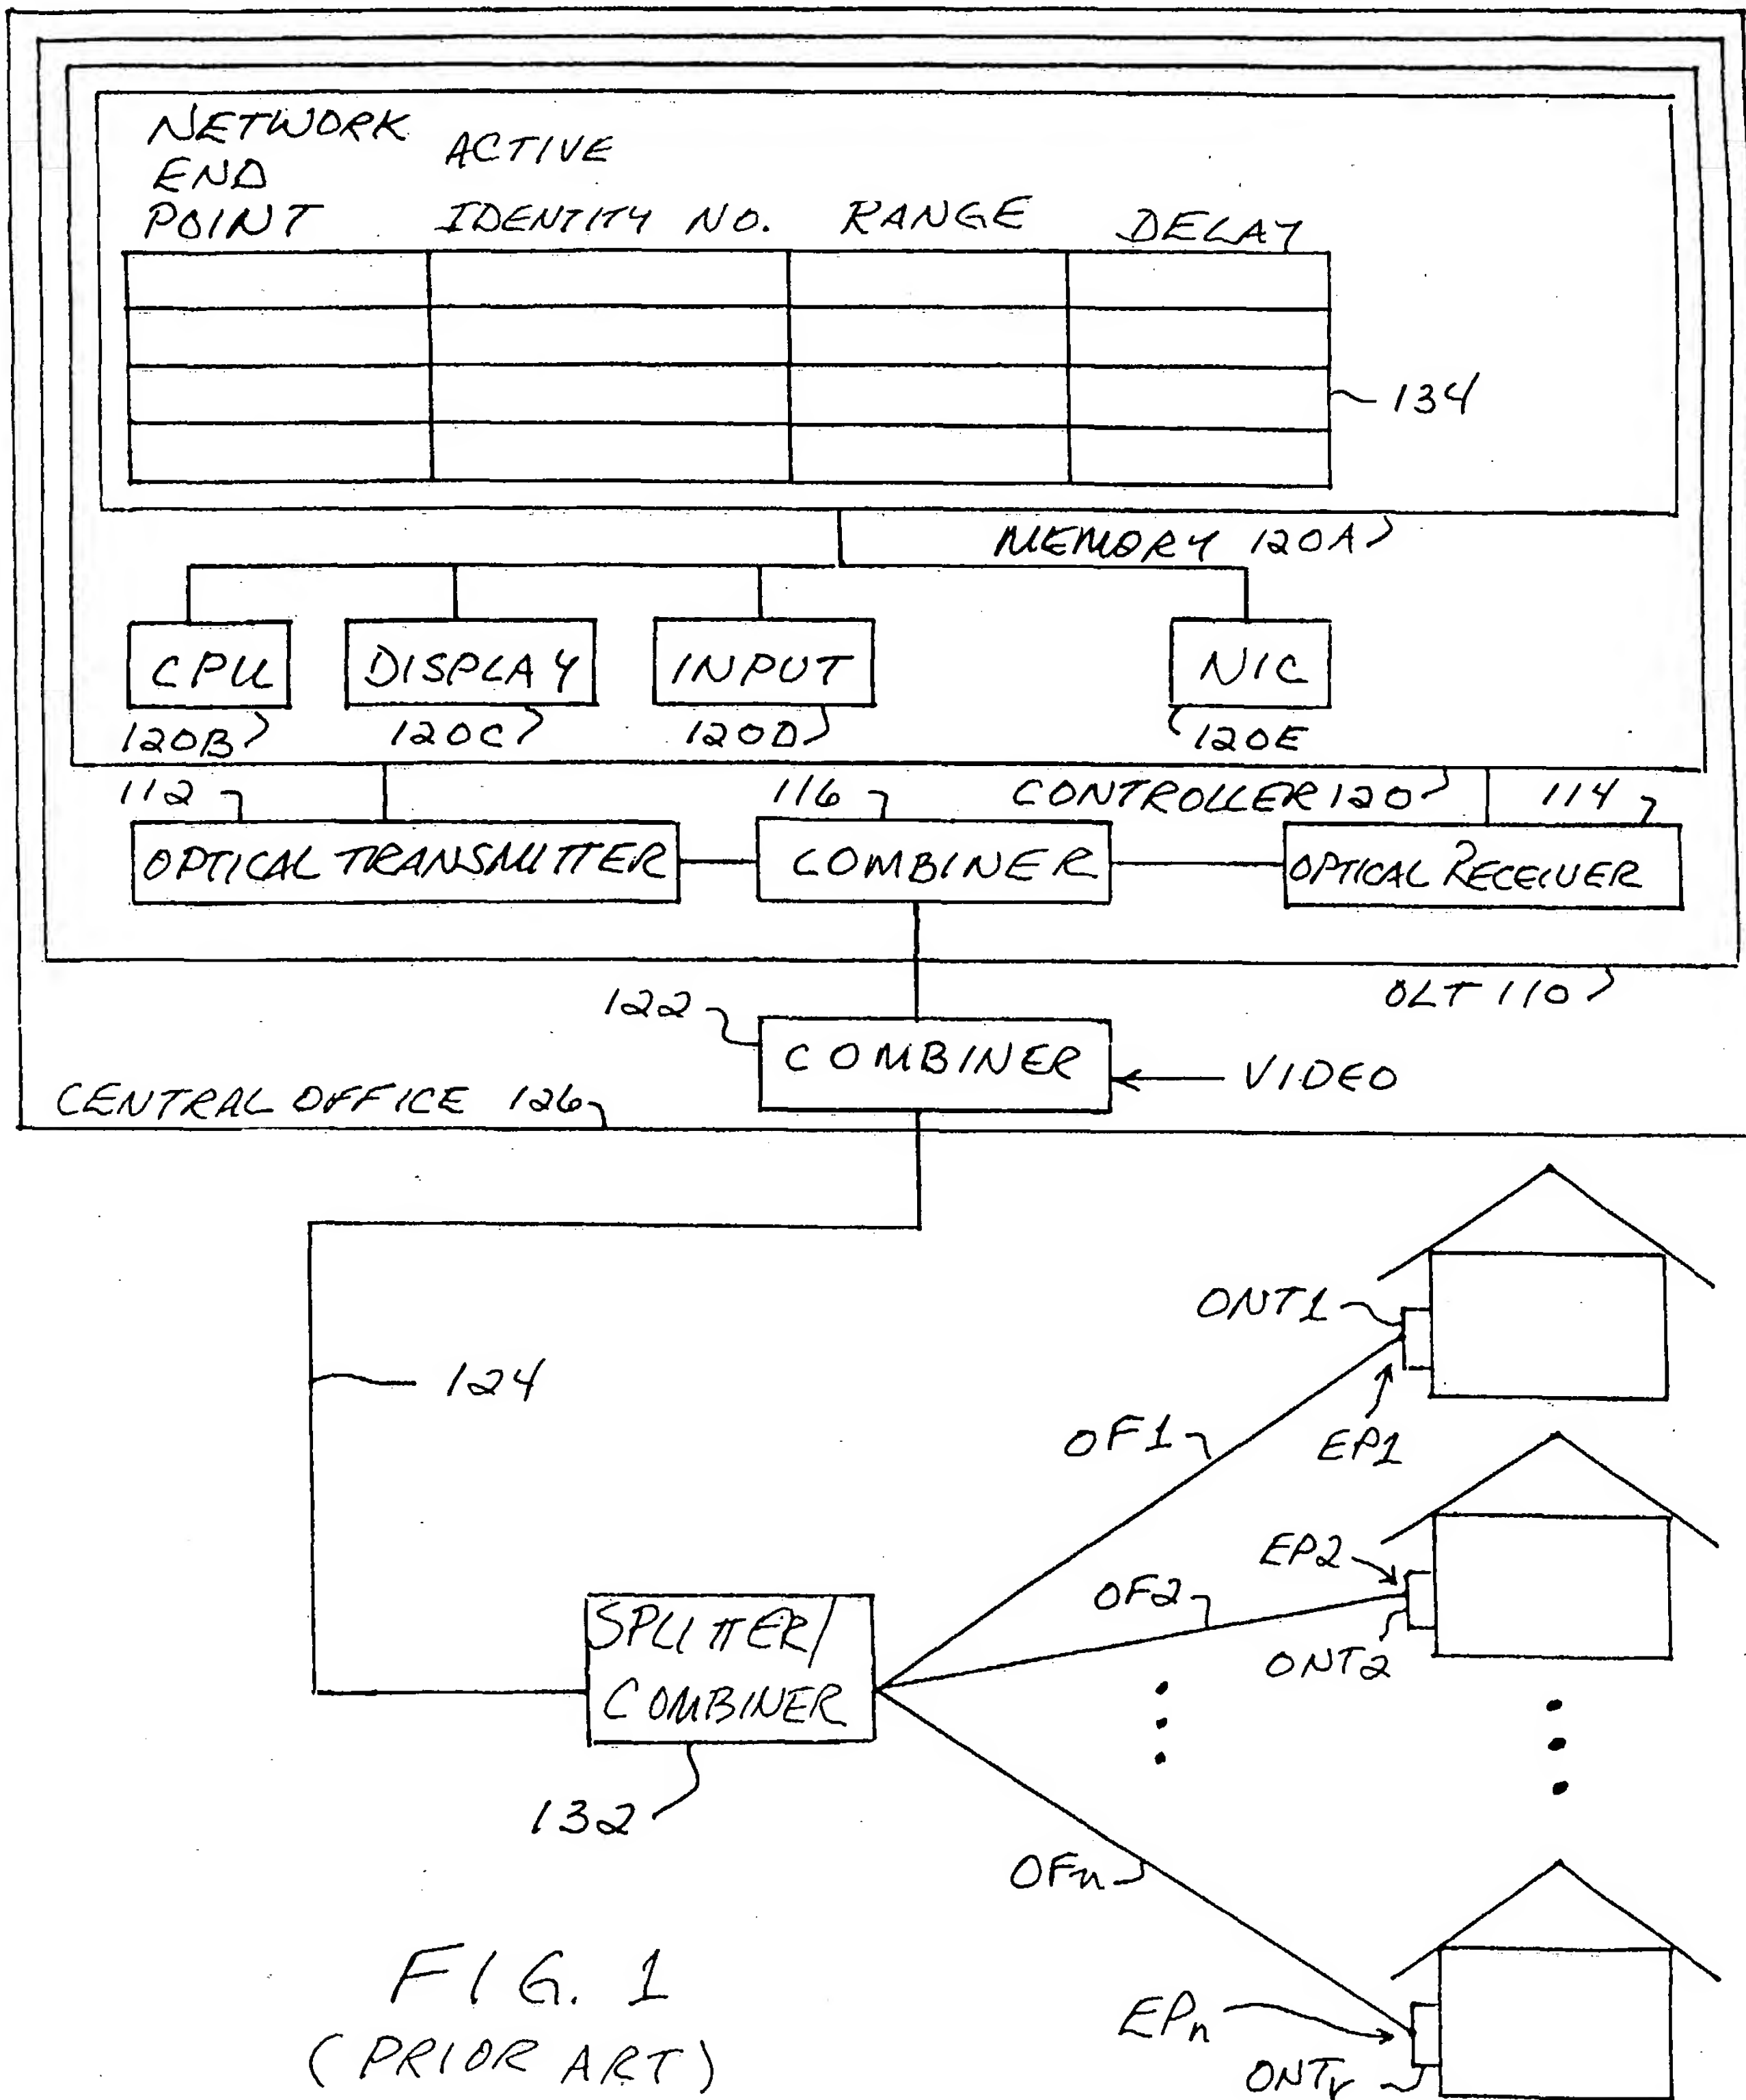 NETWORK
END
POINT
ACTIVE
IDENTITY NO.
RANGE
DELAY
134
MEMORY 120A
CPU
DISPLAY
INPUT
NIC
120B
120C
120D
120E
112
116
CONTROLLER 120
114
OPTICAL TRANSMITTER
COMBINER
OPTICAL RECEIVER
OLT 110
122
COMBINER
VIDEO
CENTRAL OFFICE 126
ONT1
124
OF1
EP1
EP2
OF2
SPLITTER/
COMBINER
ONT2
132
OFn
FIG. 1
(PRIOR ART)
EPn